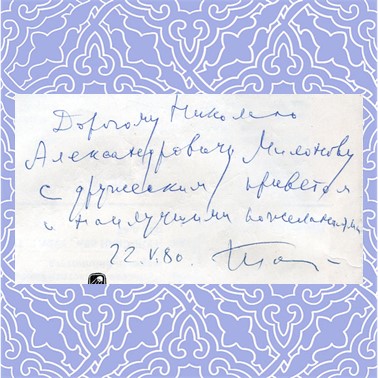 Дорогому Николаю
Александровичу Милонову
с дружеским приветом
и наилучшими пожеланиями
22.V.80.